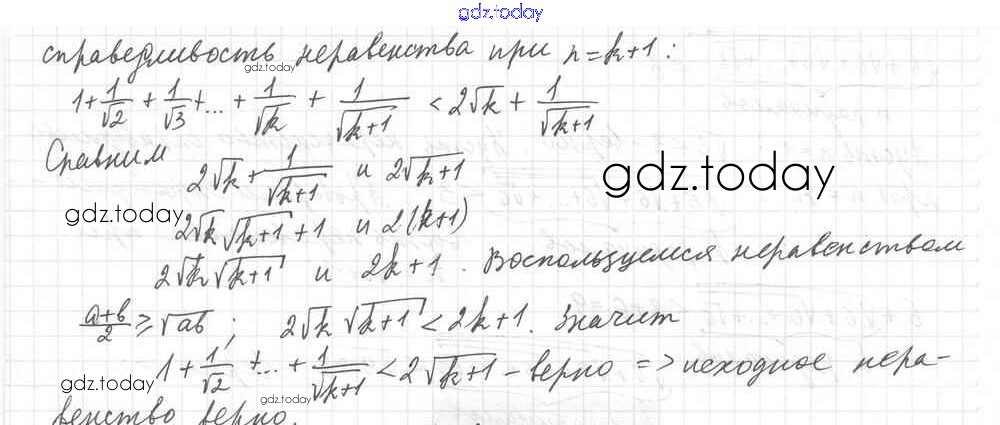 gdz.today
справедливость неравенства при n=k+1:
gdz.today
1+1/√2 + 1/√3 +...+ 1/√k + 1/√(k+1) < 2√k + 1/√(k+1)
Сравним 2√k + 1/√(k+1) и 2√(k+1)
gdz.today
gdz.today
2√k √(k+1) + 1 и 2(k+1)
2√k √(k+1) и 2k+1. Воспользуемся неравенством
(a+b)/2 ≥ √ab; 2√k √(k+1) < 2k+1. Значит
1+1/√2 +...+ 1/√(k+1) < 2√(k+1) - верно => исходное нера-
gdz.today
gdz.today
венство верно.